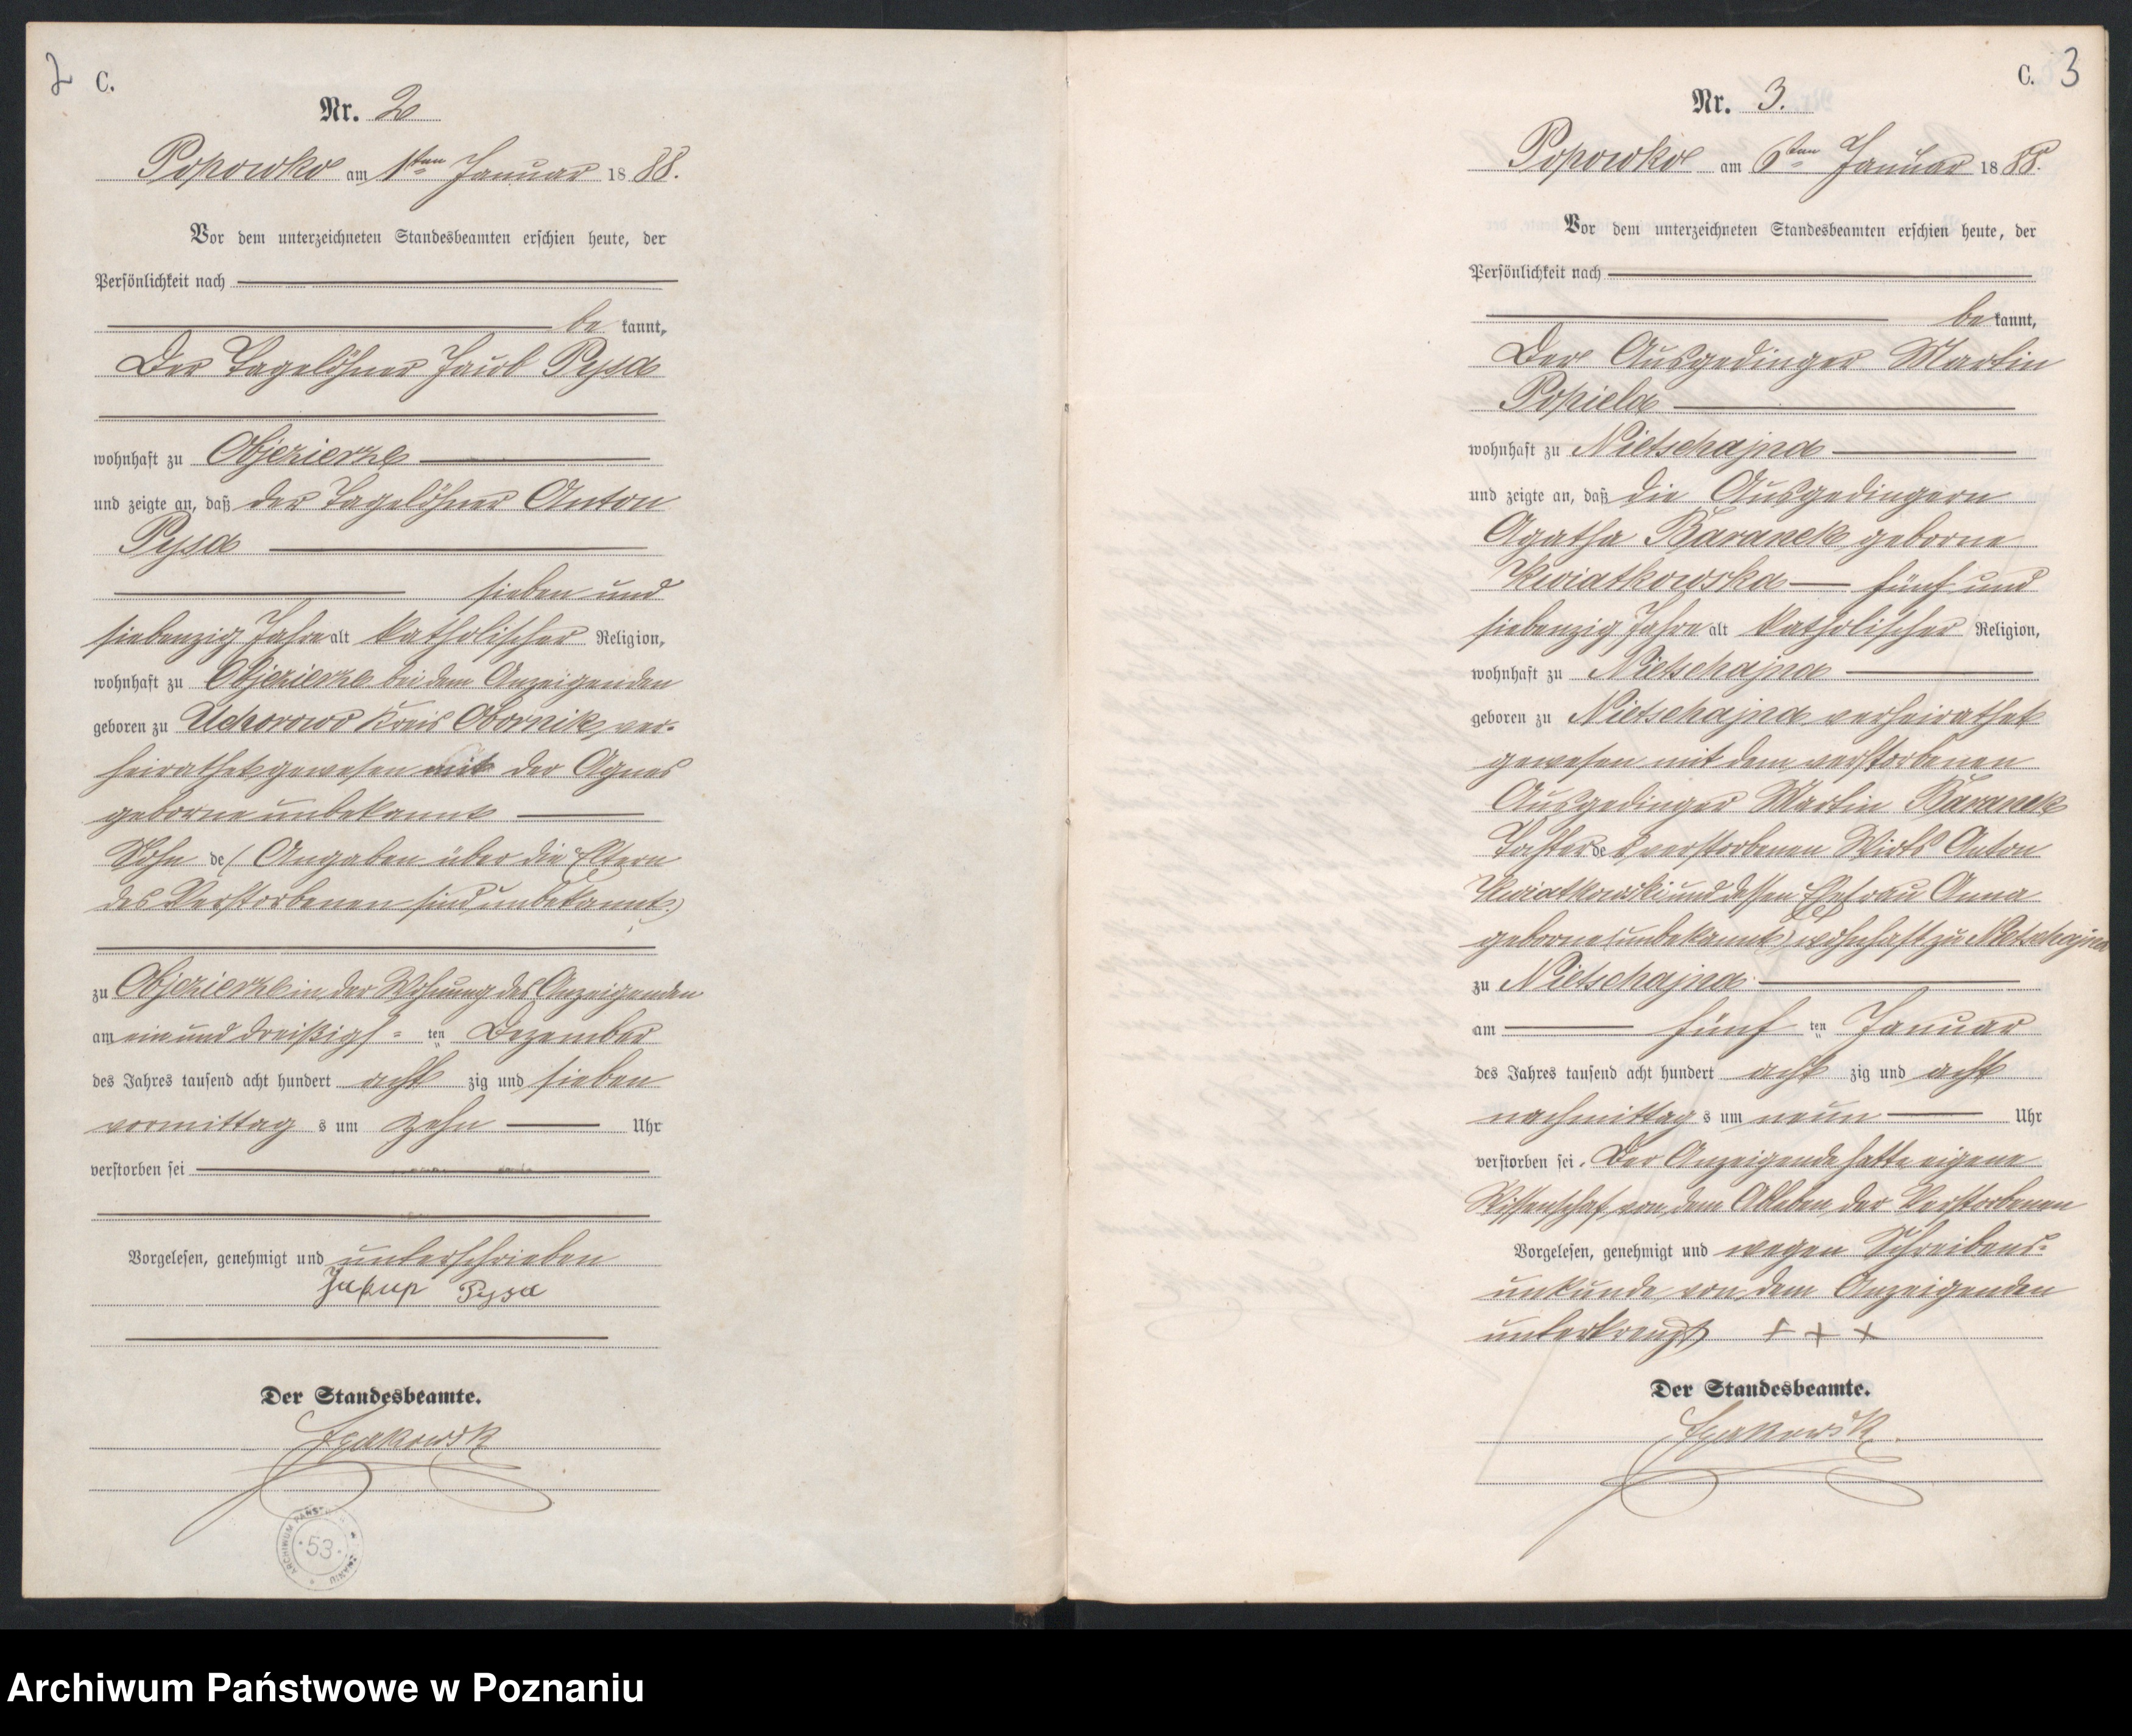 2 C.
Nr. 2
Popowko am 1ten Januar 1888.
Vor dem unterzeichneten Standesbeamten erschien heute, der
Persönlichkeit nach
be kannt,
Der Tagelöhner Jacob Pysa
wohnhaft zu Objezierze
und zeigte an, daß der Tagelöhner Anton
Pysa
sieben und
siebenzig Jahre alt katholischer Religion,
wohnhaft zu Objezierze bei dem Anzeigenden
geboren zu Uchorowo Kreis Obornik, ver-
heirathet gewesen mit der Agnes
geborne unbekannt
Sohn de (Angaben über die Eltern
des Verstorbenen sind unbekannt)
zu Objezierze in der Wohnung des Anzeigenden
am ein und dreißigs= ten Dezember
des Jahres tausend acht hundert acht zig und sieben
vormittag s um zehn Uhr
verstorben sei
Vorgelesen, genehmigt und unterschrieben
Jakup Pysa
Der Standesbeamte.
ARCHIWUM PAŃST
53
C. 3
Nr. 3.
Popowko am 6ten Januar 1888.
Vor dem unterzeichneten Standesbeamten erschien heute, der
Persönlichkeit nach
be kannt,
Der Ausgedinger Martin
Popiela
wohnhaft zu Nietschajna
und zeigte an, daß die Ausgedingern
Agatha Baranek geborne
Kwiatkowska fünf und
siebenzig Jahre alt katholischer Religion,
wohnhaft zu Nietschajna
geboren zu Nietschajna verheirathet
gewesen mit dem verstorbenen
Ausgedinger Martin Baranek
Tochter des verstorbenen Wirts Anton
Kwiatkowski und dessen Ehefrau Anna
geborne (unbekannt) wohnhaft zu Nietschajna
zu Nietschajna.
am fünf ten Januar
des Jahres tausend acht hundert acht zig und acht
nachmittag s um neun Uhr
verstorben sei. Der Anzeigende hatte eigene
Wissenschaf von dem Ableben der Verstorbenen
Vorgelesen, genehmigt und wegen Schreibens-
unkunde von dem Anzeigenden
unterkreuzt + + +
Der Standesbeamte.
Archiwum Państwowe w Poznaniu